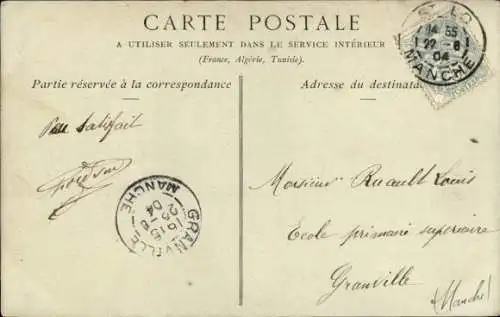 CARTE POSTALE
A UTILISER SEULEMENT DANS LE SERVICE INTÉRIEUR
(France, Algérie, Tunisie).
Partie réservée à la correspondance
Adresse du destinata
ST LO
14 55
22 -8
04
MANCHE
Peu Satisfait
GRANVILLE
04
MANCHE
Monsieur Ruault Louis
Ecole primaire supérieure
Granville
(Manche)